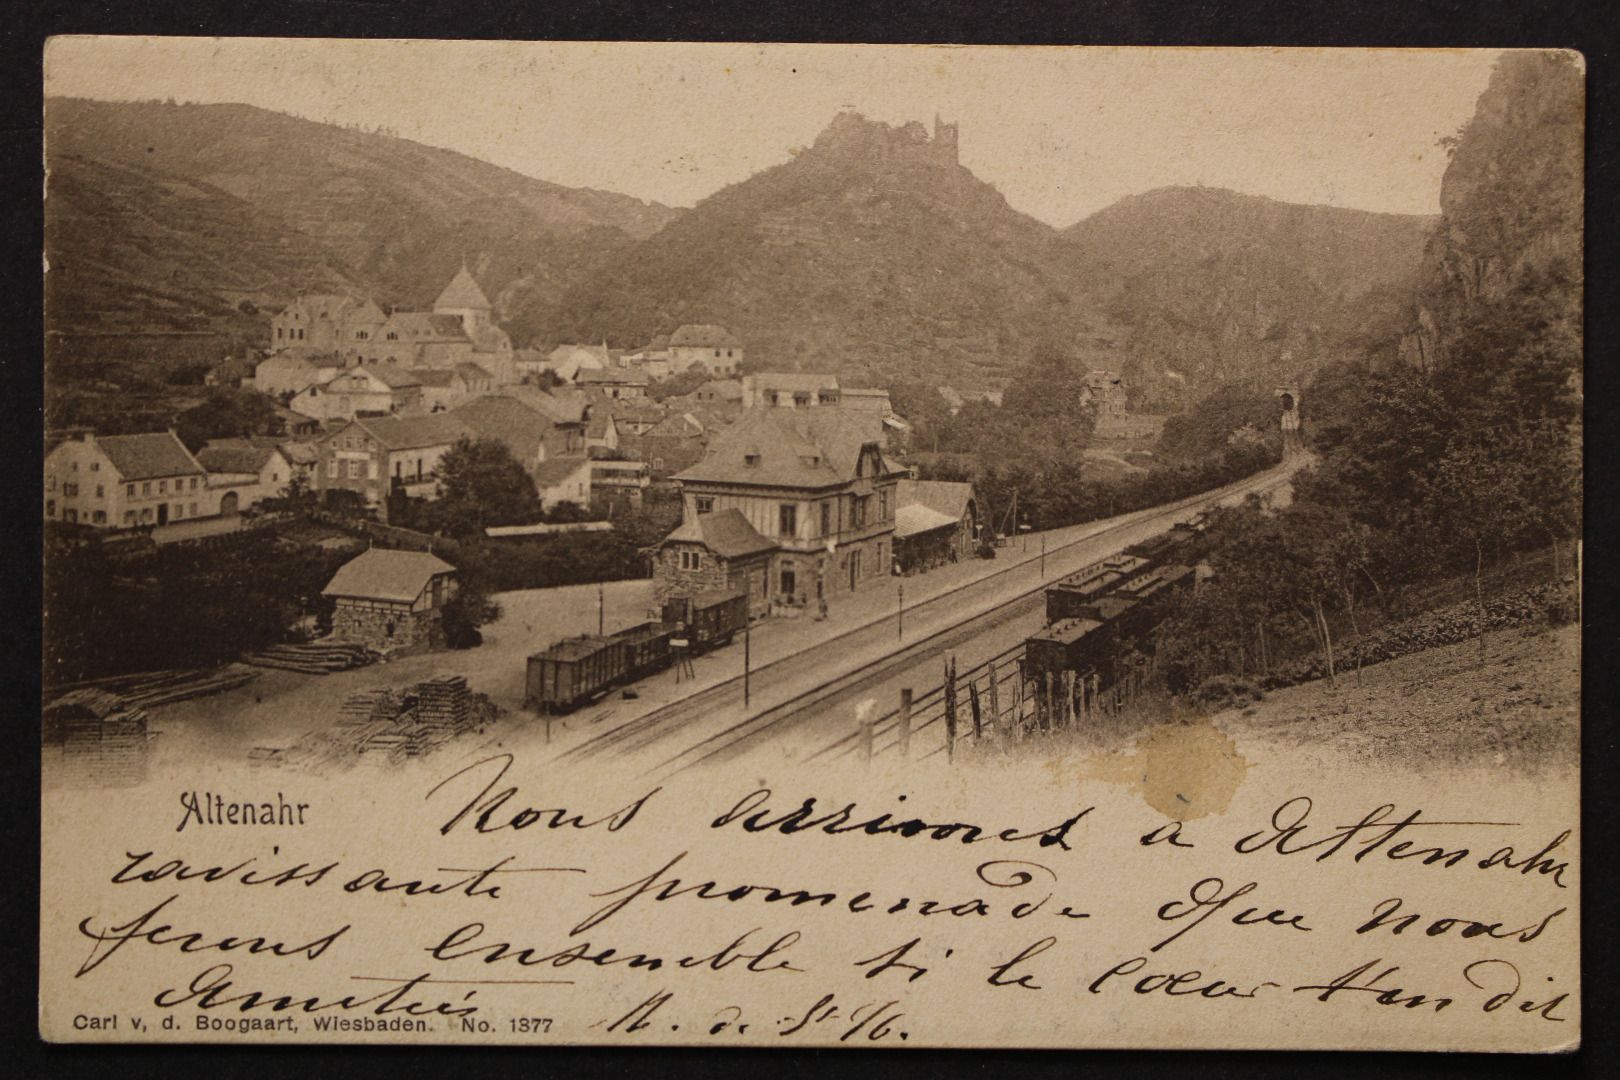 Altenahr
Nous arrivons à Altenahr
ravissante promenade que nous
ferons ensemble si le cœur t'en dit
Amitiés
Carl v. d. Boogaart, Wiesbaden. No. 1377